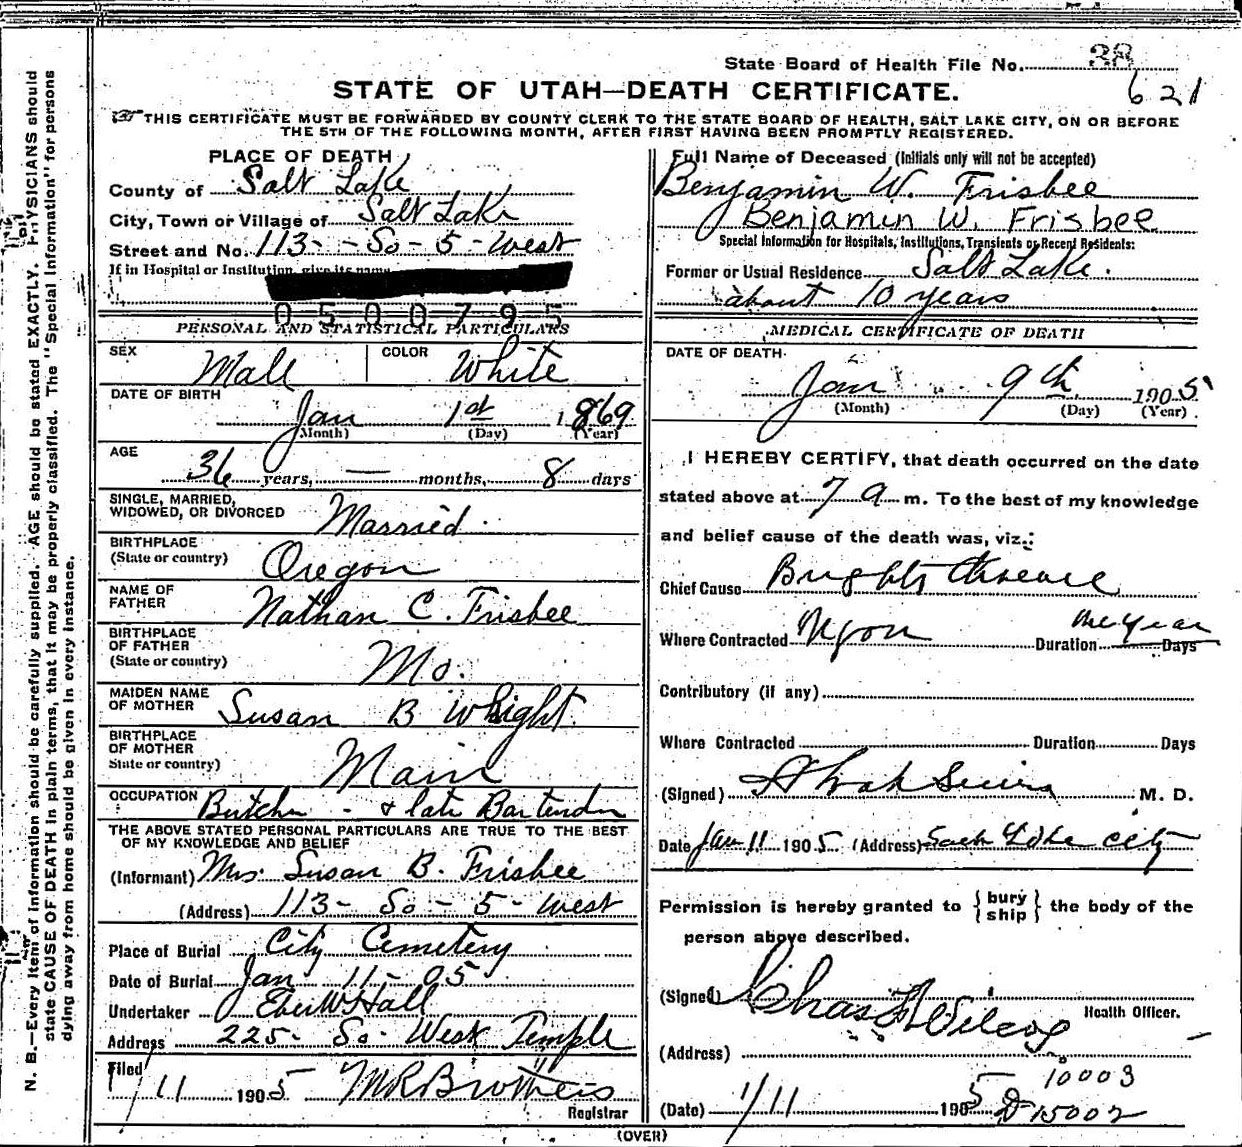 State Board of Health File No. 38
621
STATE OF UTAH—DEATH CERTIFICATE.
THIS CERTIFICATE MUST BE FORWARDED BY COUNTY CLERK TO THE STATE BOARD OF HEALTH, SALT LAKE CITY, ON OR BEFORE
THE 5TH OF THE FOLLOWING MONTH, AFTER FIRST HAVING BEEN PROMPTLY REGISTERED.
N. B.—Every item of information should be carefully supplied. AGE should be stated EXACTLY. PHYSICIANS should
state CAUSE OF DEATH in plain terms, that it may be properly classified. The "Special Information" for persons
dying away from home should be given in every instance.
PLACE OF DEATH
County of Salt Lake
City, Town or Village of Salt Lake
Street and No. 113- - So - 5 - West
If in Hospital or Institution, give its name
0500795
PERSONAL AND STATISTICAL PARTICULARS
SEX Male COLOR White
DATE OF BIRTH
Jan 1st 1869
(Month) (Day) (Year)
AGE
36 years, — months, 8 days
SINGLE, MARRIED,
WIDOWED, OR DIVORCED Married
BIRTHPLACE
(State or country) Oregon
NAME OF
FATHER Nathan C. Frisbee
BIRTHPLACE
OF FATHER
(State or country) Mo.
MAIDEN NAME
OF MOTHER Susan B Whight
BIRTHPLACE
OF MOTHER
State or country) Main
OCCUPATION Butcher - & late Bartender
THE ABOVE STATED PERSONAL PARTICULARS ARE TRUE TO THE BEST
OF MY KNOWLEDGE AND BELIEF
(Informant) Mrs. Susan B. Frisbee
(Address) 113- So - 5 - West
Place of Burial City Cemetery
Date of Burial Jan 11 - 05
Undertaker Eber W Hall
Address 225- So- West Temple
Filed
1/11 1905 M R Brothers
Registrar
Full Name of Deceased (Initials only will not be accepted)
Benjamin W. Frisbee
Benjamin W. Frisbee
Special Information for Hospitals, Institutions, Transients or Recent Residents:
Former or Usual Residence Salt Lake.
about 10 years
MEDICAL CERTIFICATE OF DEATH
DATE OF DEATH
Jan 9th 1905
(Month) (Day) (Year)
I HEREBY CERTIFY, that death occurred on the date
stated above at 7 a m. To the best of my knowledge
and belief cause of the death was, viz.:
Chief Cause Brights disease
Where Contracted Duration one year Days
Contributory (if any)
Where Contracted Duration Days
(Signed) M. D.
Date Jan 11 1905 (Address) Salt Lake City
Permission is hereby granted to { bury
ship } the body of the
person above described.
(Signed) Chas Wilcox
Health Officer.
(Address)
10003
(Date) 1/11 1905 D-15002
(OVER)